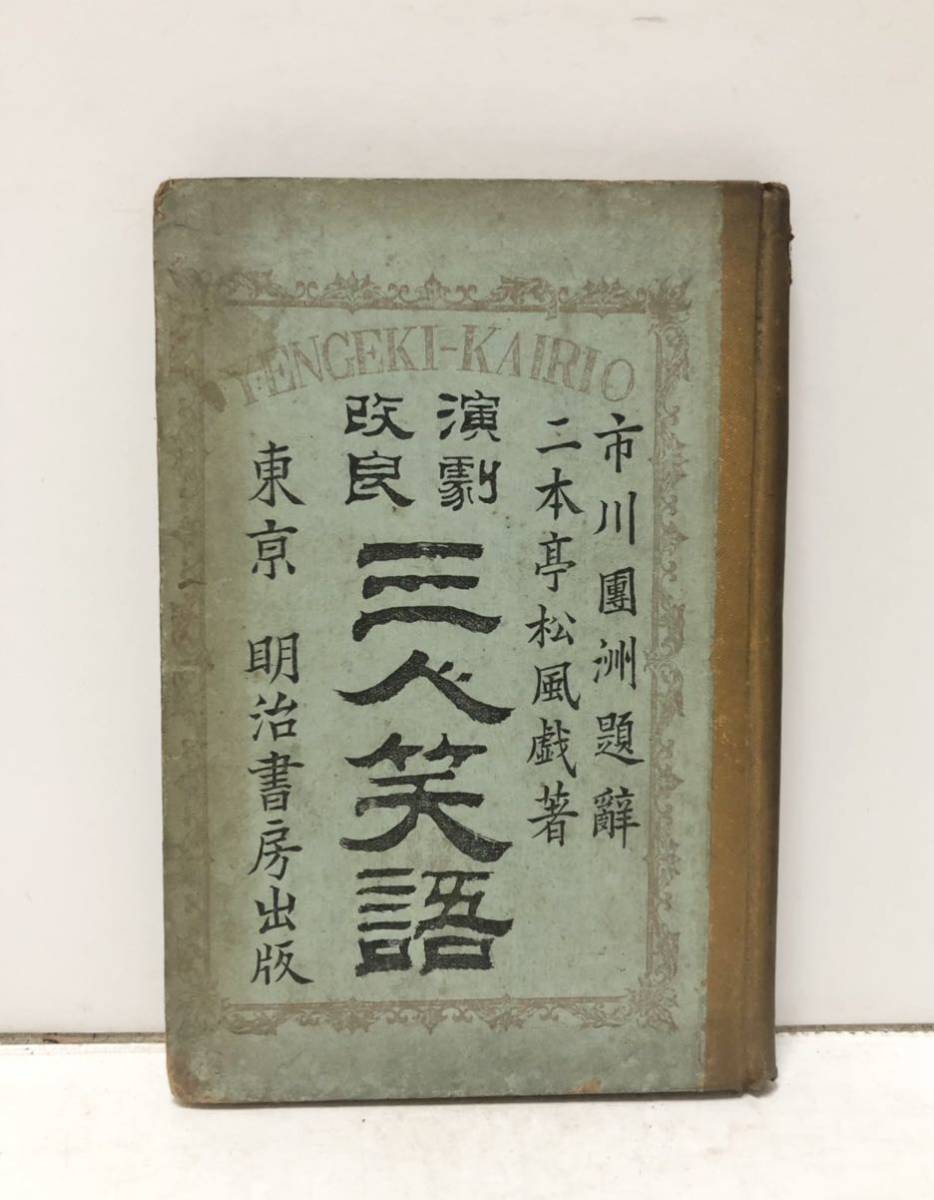 YENGEKI-KAIRIO
市川團洲題辭
二本亭松風戯著
演劇
改良
三人笑語
東京 明治書房出版